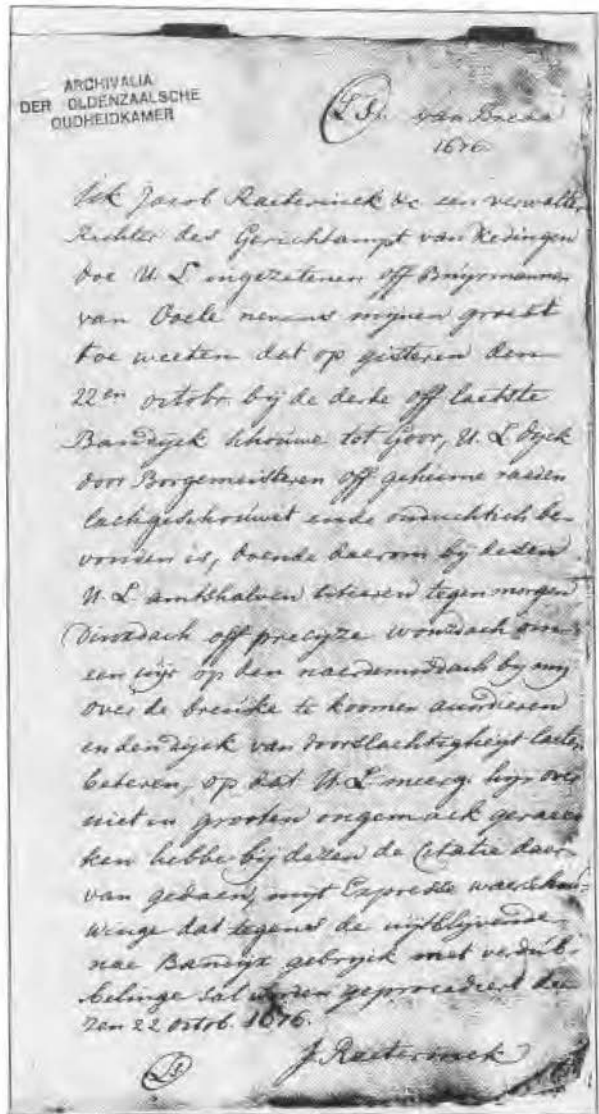 ARCHIVALIA
DER OLDENZAALSCHE
OUDHEIDKAMER
van Breda
1676
Ick Jacob Raeterinck &c een verwalter
Richter des Gerichtampt van Kedingen
doe U. L ingezetenen off Buijrmannen
van Deele nevens mijnen groest
toe weeten dat op gisteren den
22en octobr. bij de derde off laetste
Bandijck schouwe tot Goor, U. L dijck
door Borgemeisteren off geheime raeden
lackgeschouwt ende onduchtich be-
vonden is, doende daerom bij desen
U. L amtshalven citeeren tegen morgen
Dinxdach off precijze wonsdach om
een uijr op den naedemiddach bij mij
over de breuke te koomen accordieren
en den dijck van doorslachtigheijt laeten
beteren, op dat U. L. hijr over
niet in grooten ongemack geraec
ken hebbe bij dezen de Citatie daer-
van gedaen, mijt Expresse waerschuu-
winge dat tegens de uijtblijvende
nae Bandijx gebruijck met verdub-
belinge sal worden geprocediert de-
zen 22 octob. 1676.
J Raeterinck